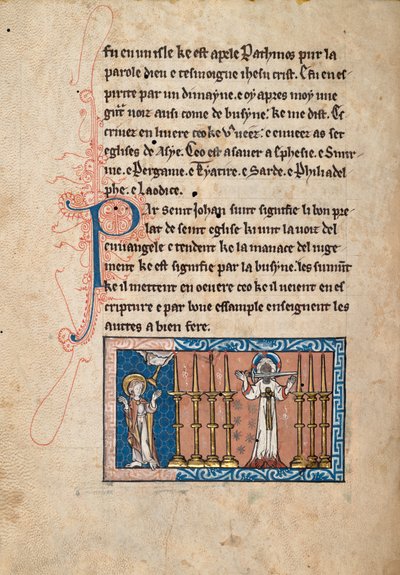 fu en un isle ke est apele Pathmos pur la
parole dieu e tesmoigne ihesu crist. E fu en es
pirite par un dimayne. e oy apres moy une
voiz ausi come de busyne. ke me dist. Es
en livere ceo ke veer. e enveer as set
eglises de Asye. Ceo est a saver a Ephesie. e Smir
ne. e Pergame. e Tyatire. e Sarde. e Philadel
phe. e Laodice.
Par seint Johan sunt signifie li bon pre
lat de seint eglise ki unt la voiz del
euuangele e tendent ke la manace del iuge
ment ke est signifie par la busyne. les
ke il mettent en oevere ceo ke il en es
cripture e par bone essample enseignent les
autres a bien fere.